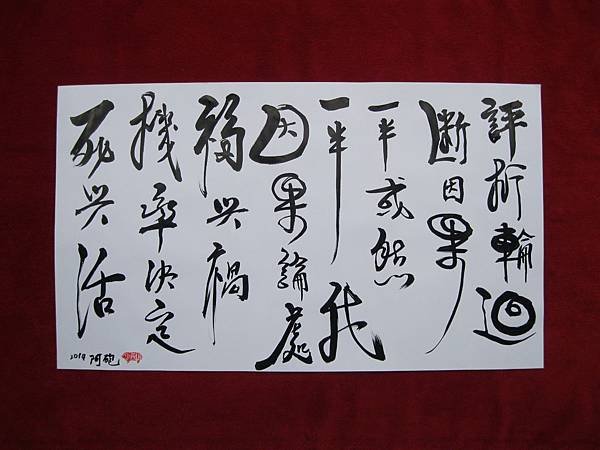 評析輪迴
斷因果
一半或然
一半我
因果論處
福與禍
機率決定
死與活
2014 阿砲